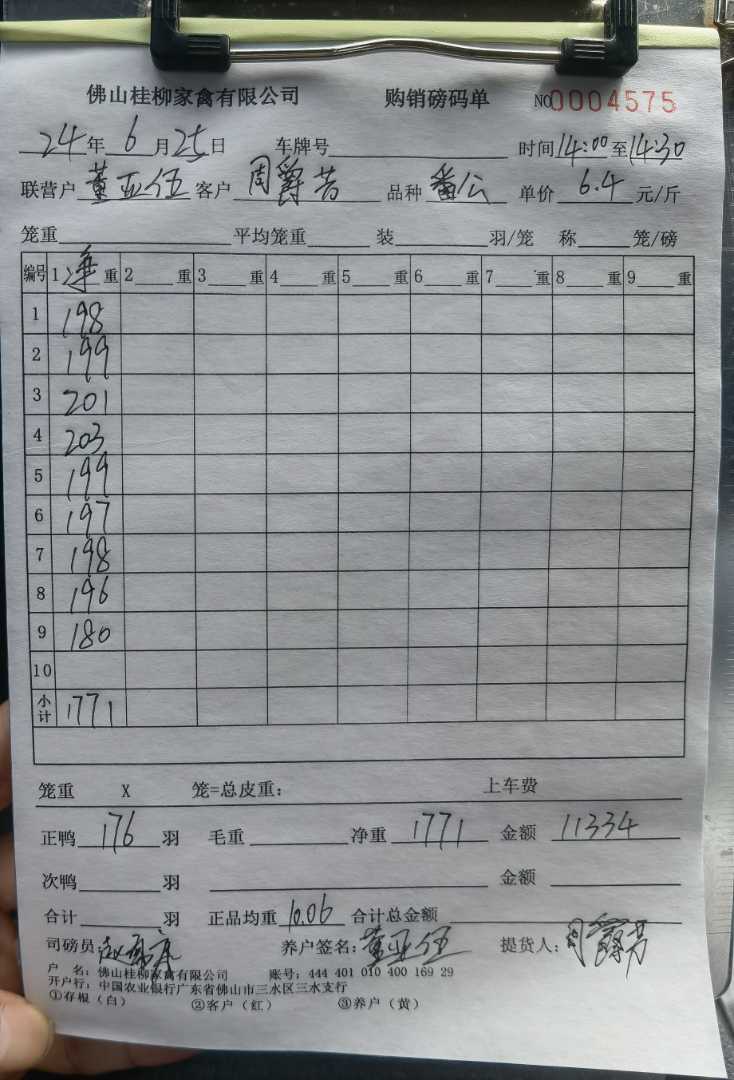 佛山桂柳家禽有限公司 购销磅码单 NO 0004575
24年6月25日 车牌号 时间14:00至14:30
联营户 董亚伍 客户 周爵芳 品种 番公 单价 6.4 元/斤
笼重 平均笼重 装 羽/笼 称 笼/磅
编号 1 净 重 2 重 3 重 4 重 5 重 6 重 7 重 8 重 9 重
1 198
2 199
3 201
4 203
5 199
6 197
7 198
8 196
9 180
10
小计 1771
笼重 X 笼=总皮重: 上车费
正鸭 176 羽 毛重 净重 1771 金额 11334
次鸭 羽 金额
合计 羽 正品均重 10.06 合计总金额
司磅员: 养户签名: 董亚伍 提货人: 周爵芳
户 名: 佛山桂柳家禽有限公司 账号: 444 401 010 400 169 29
开户行: 中国农业银行广东省佛山市三水区三水支行
①存根（白） ②客户（红） ③养户（黄）